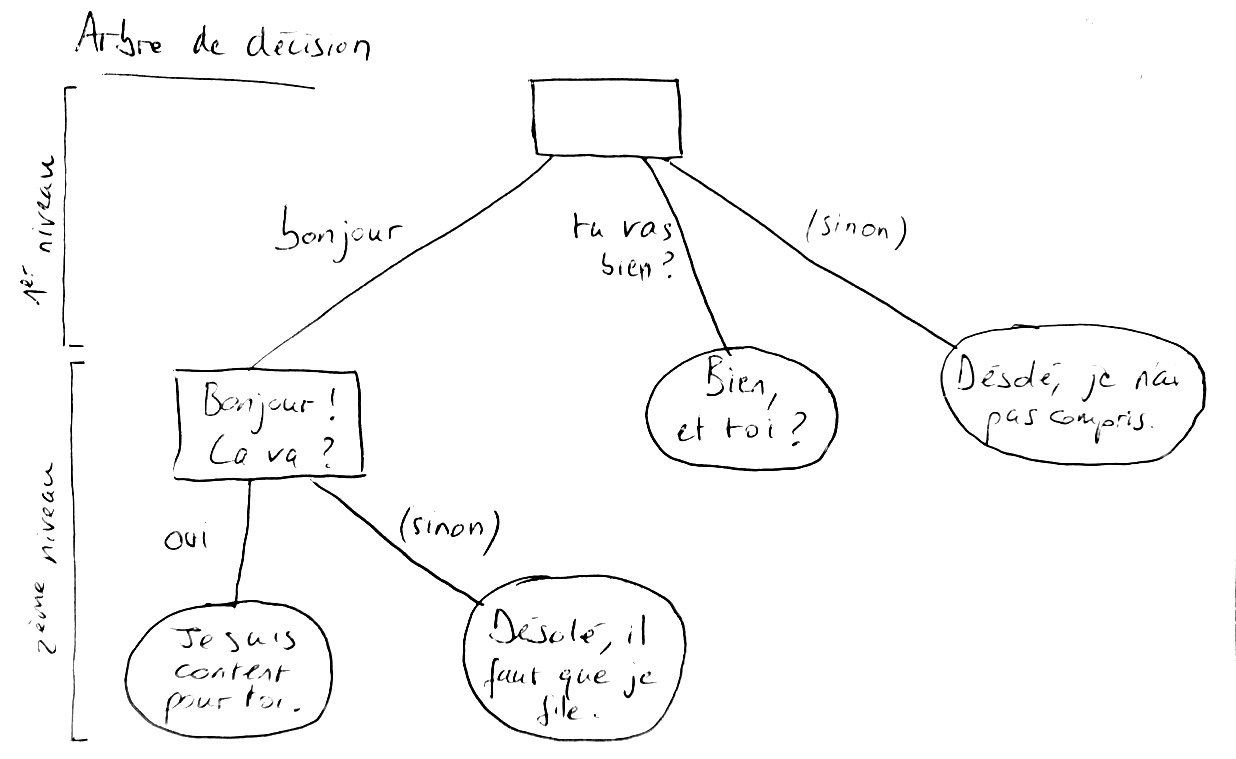 Arbre de décision
1er niveau
bonjour
tu vas
bien ?
(sinon)
Bonjour !
Ca va ?
Bien,
et toi ?
Désolé, je n'ai
pas compris.
2ème niveau
oui
(sinon)
Je suis
content
pour toi.
Désolé, il
faut que je
file.